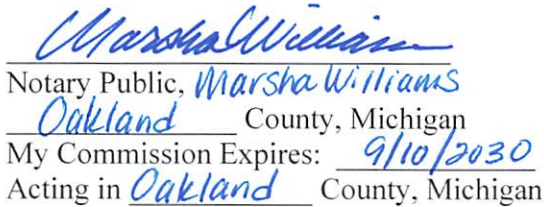 Marsha Williams
Notary Public, Marsha Williams
Oakland County, Michigan
My Commission Expires: 9/10/2030
Acting in Oakland County, Michigan